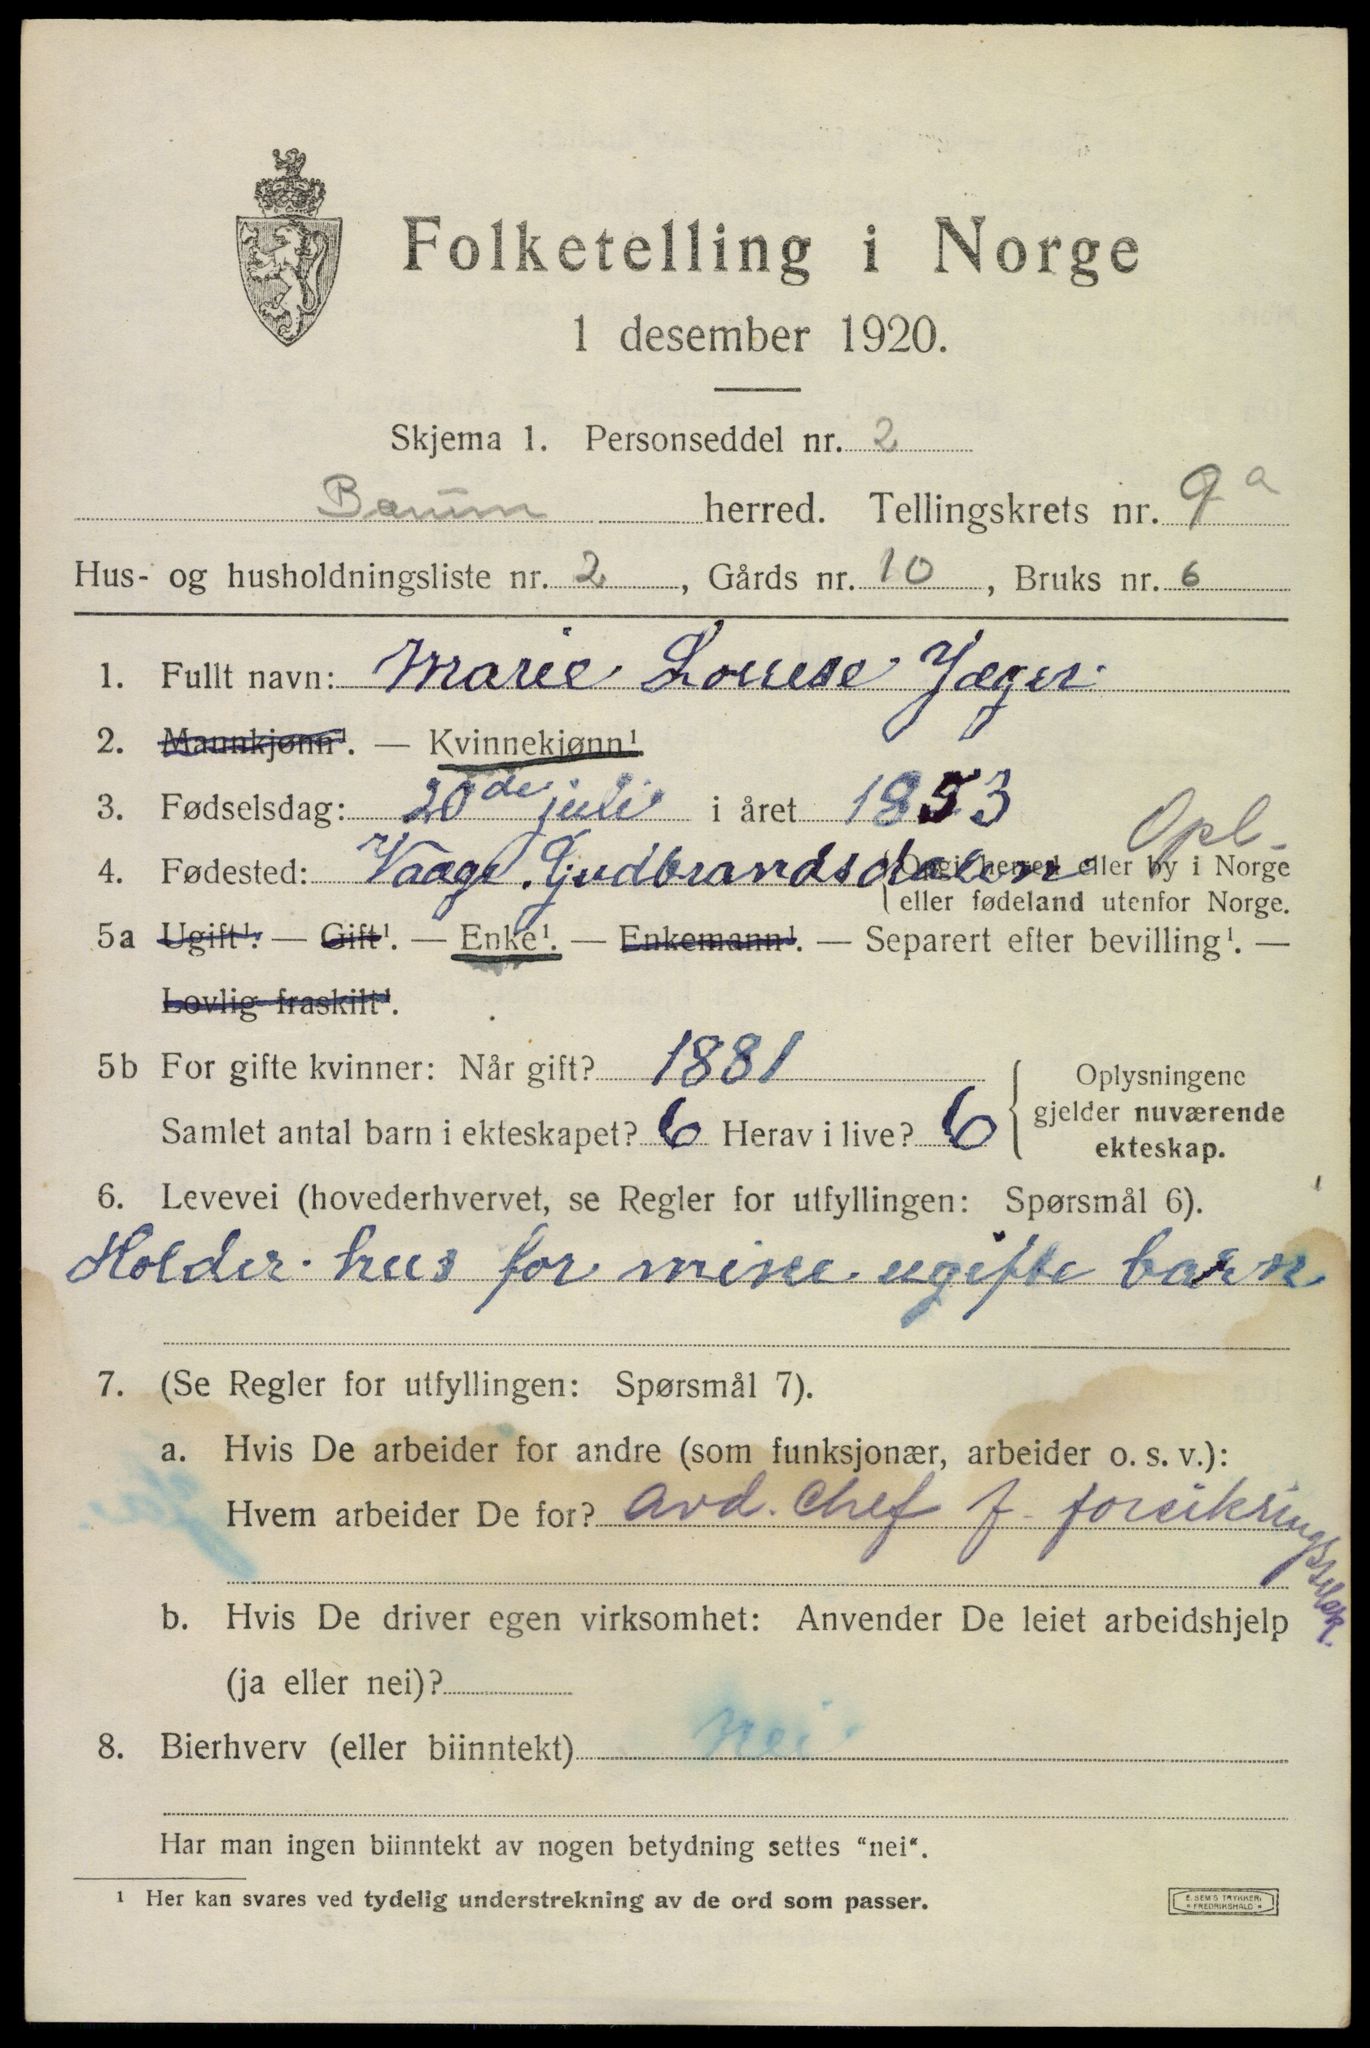 Folketelling i Norge
1 desember 1920.
Skjema 1. Personseddel nr. 2
Bærum herred. Tellingskrets nr. 9 a
Hus- og husholdningsliste nr. 2, Gårds nr. 10, Bruks nr. 6
1. Fullt navn: Marie Louise Jæger
2. Mannkjønn¹. — Kvinnekjønn¹
3. Fødselsdag: 20de juli i året 1853
Opl.
4. Fødested: Vaage. Gudbrandsdalen (Opgi herred eller by i Norge
eller fødeland utenfor Norge.
5a Ugift¹. — Gift¹. — Enke¹. — Enkemann¹. — Separert efter bevilling¹. —
Lovlig fraskilt¹.
5b For gifte kvinner: Når gift? 1881
Samlet antal barn i ekteskapet? 6 Herav i live? 6
Oplysningene
gjelder nuværende
ekteskap.
6. Levevei (hovederhvervet, se Regler for utfyllingen: Spørsmål 6).
Holder hus for mine ugifte barn
7. (Se Regler for utfyllingen: Spørsmål 7).
a. Hvis De arbeider for andre (som funksjonær, arbeider o. s. v.):
Hvem arbeider De for? avd. chef f. forsikringsselsk.
b. Hvis De driver egen virksomhet: Anvender De leiet arbeidshjelp
(ja eller nei)?
8. Bierhverv (eller biinntekt) nei.
Har man ingen biinntekt av nogen betydning settes “nei“.
¹ Her kan svares ved tydelig understrekning av de ord som passer.
E. SEMS TRYKKERI
FREDRIKSHALD